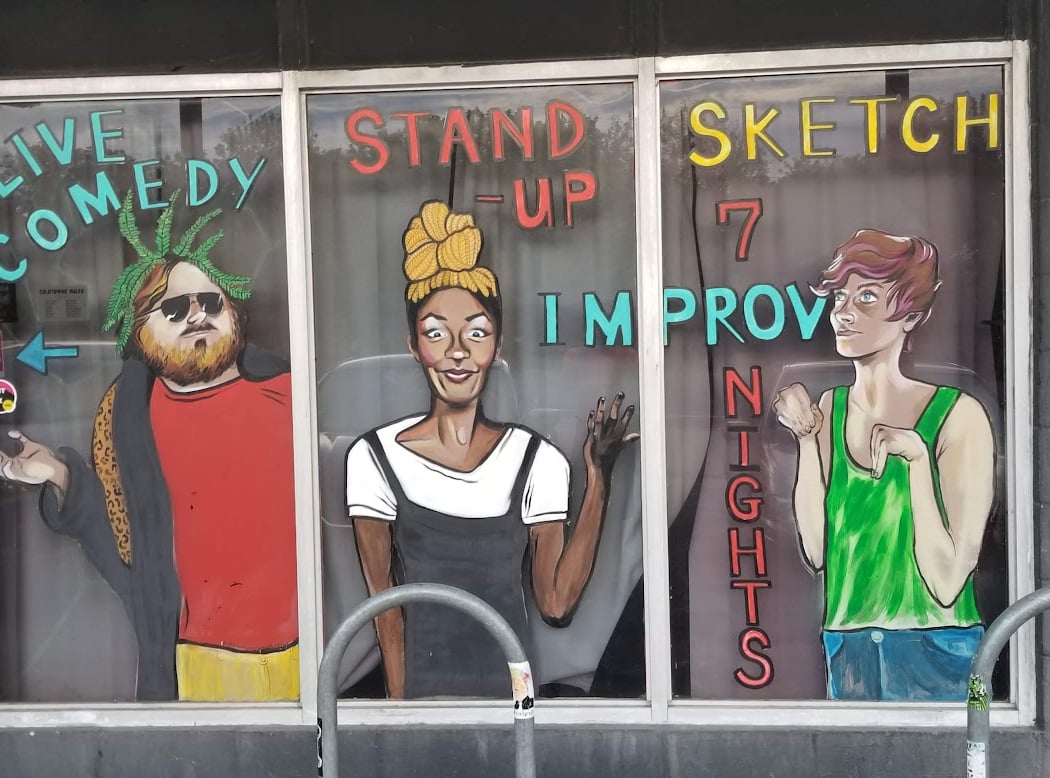 LIVE
COMEDY
STAND
-UP
SKETCH
7
IMPROV
NIGHTS
COLDTOWNE RULES